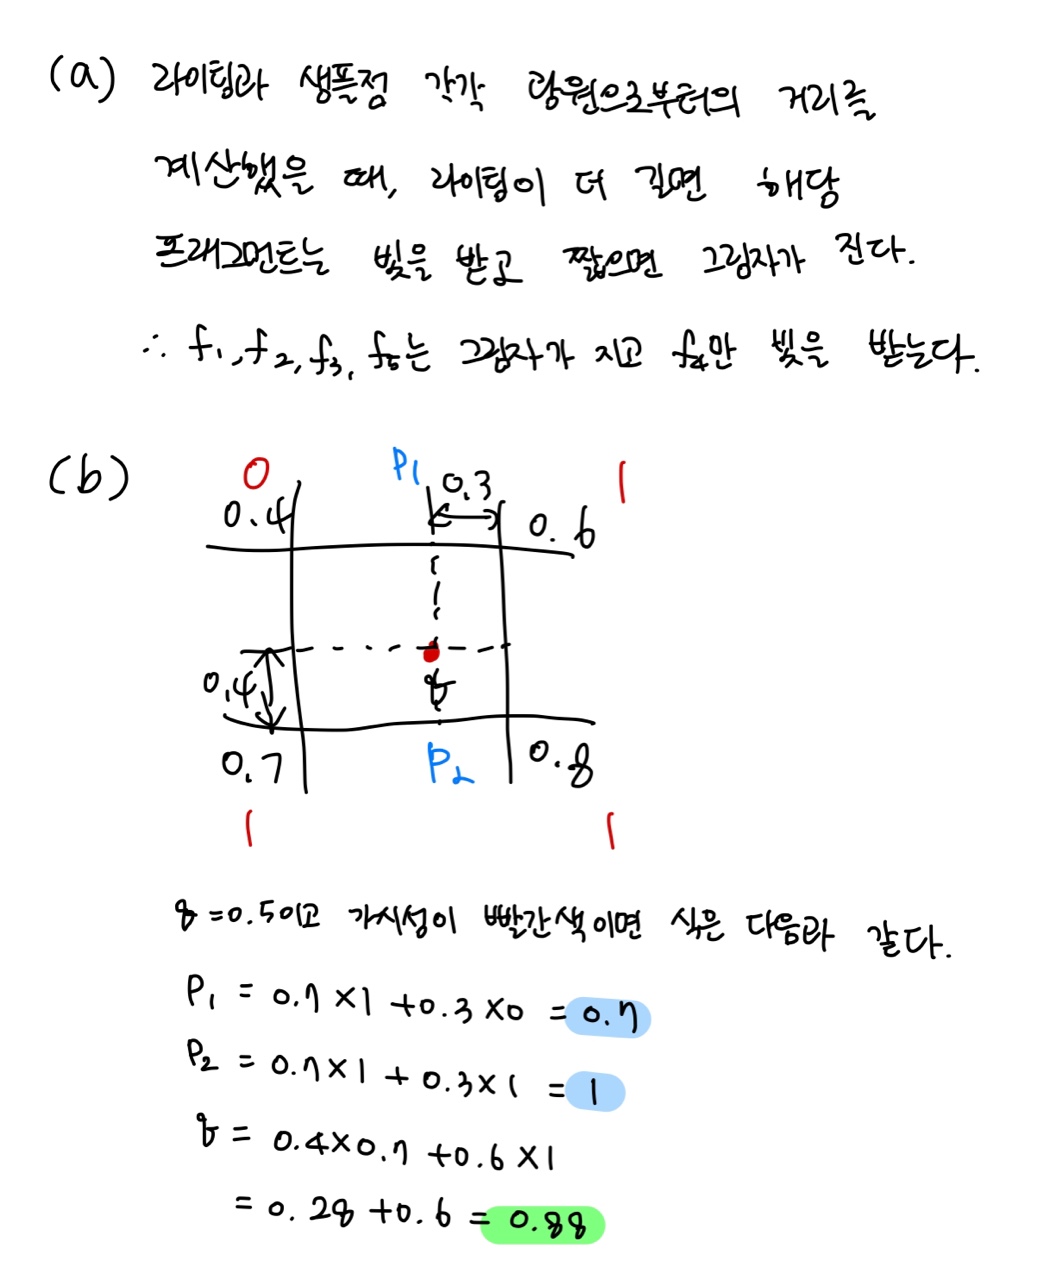 (a) 라이팅과 샘플점 각각 광원으로부터의 거리를
계산했을 때, 라이팅이 더 길면 해당
프래그먼트는 빛을 받고 짧으면 그림자가 진다.
∴ f₁, f₂, f₃, f₅는 그림자가 지고 f₄만 빛을 받는다.
(b) 0 P₁ 0.3 1
0.4 0.6
0.4 q
0.7 P₂ 0.8
1 1
q = 0.5이고 가시성이 빨간색이면 식은 다음과 같다.
P₁ = 0.7 × 1 + 0.3 × 0 = 0.7
P₂ = 0.7 × 1 + 0.3 × 1 = 1
q = 0.4 × 0.7 + 0.6 × 1
= 0.28 + 0.6 = 0.88